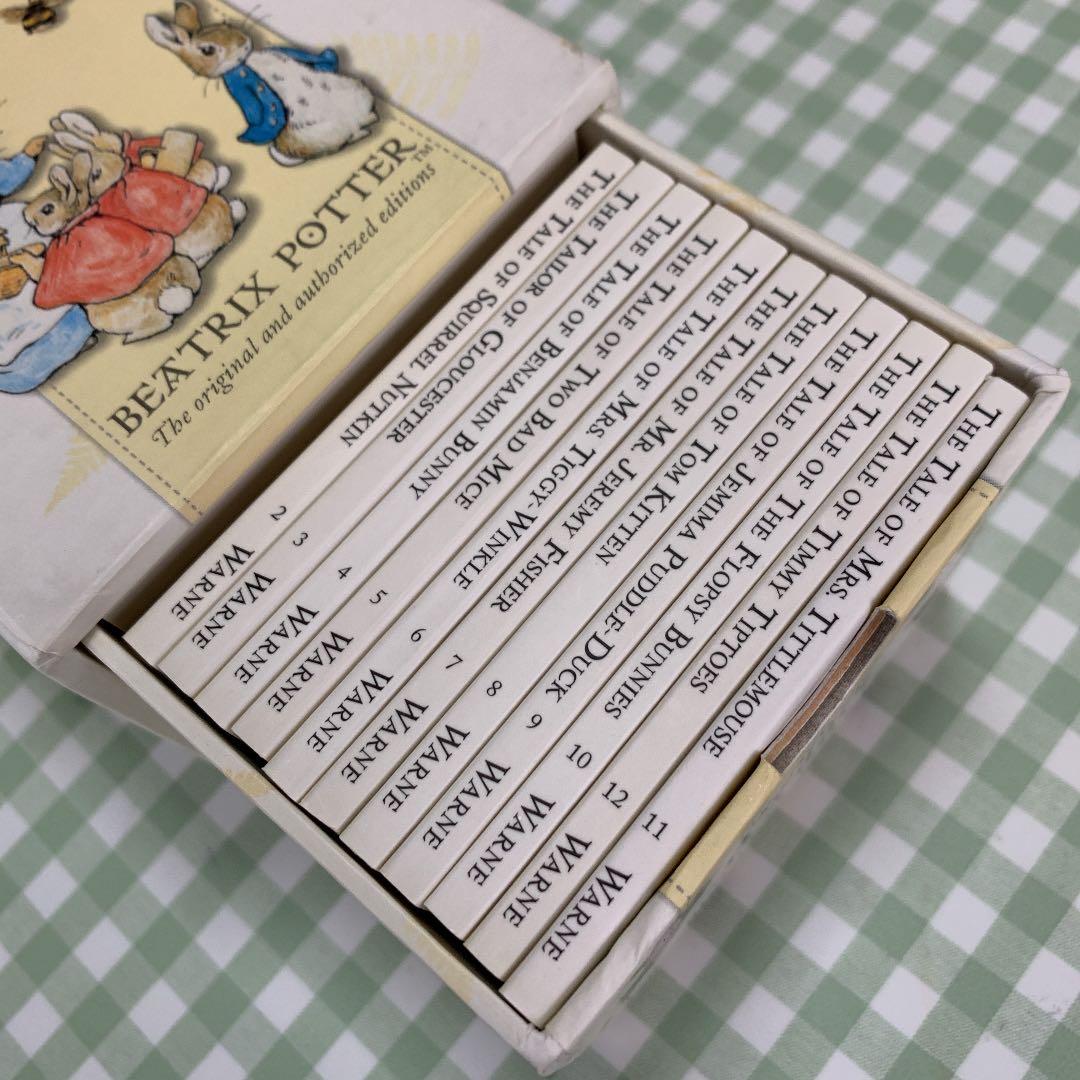 BEATRIX POTTER™
The original and authorized editions
THE TALE OF SQUIRREL NUTKIN 2 WARNE
THE TAILOR OF GLOUCESTER 3 WARNE
THE TALE OF BENJAMIN BUNNY 4 WARNE
THE TALE OF TWO BAD MICE 5 WARNE
THE TALE OF MRS. TIGGY-WINKLE 6 WARNE
THE TALE OF MR. JEREMY FISHER 7 WARNE
THE TALE OF TOM KITTEN 8 WARNE
THE TALE OF JEMIMA PUDDLE-DUCK 9 WARNE
THE TALE OF THE FLOPSY BUNNIES 10 WARNE
THE TALE OF TIMMY TIPTOES 12 WARNE
THE TALE OF MRS. TITTLEMOUSE 11 WARNE